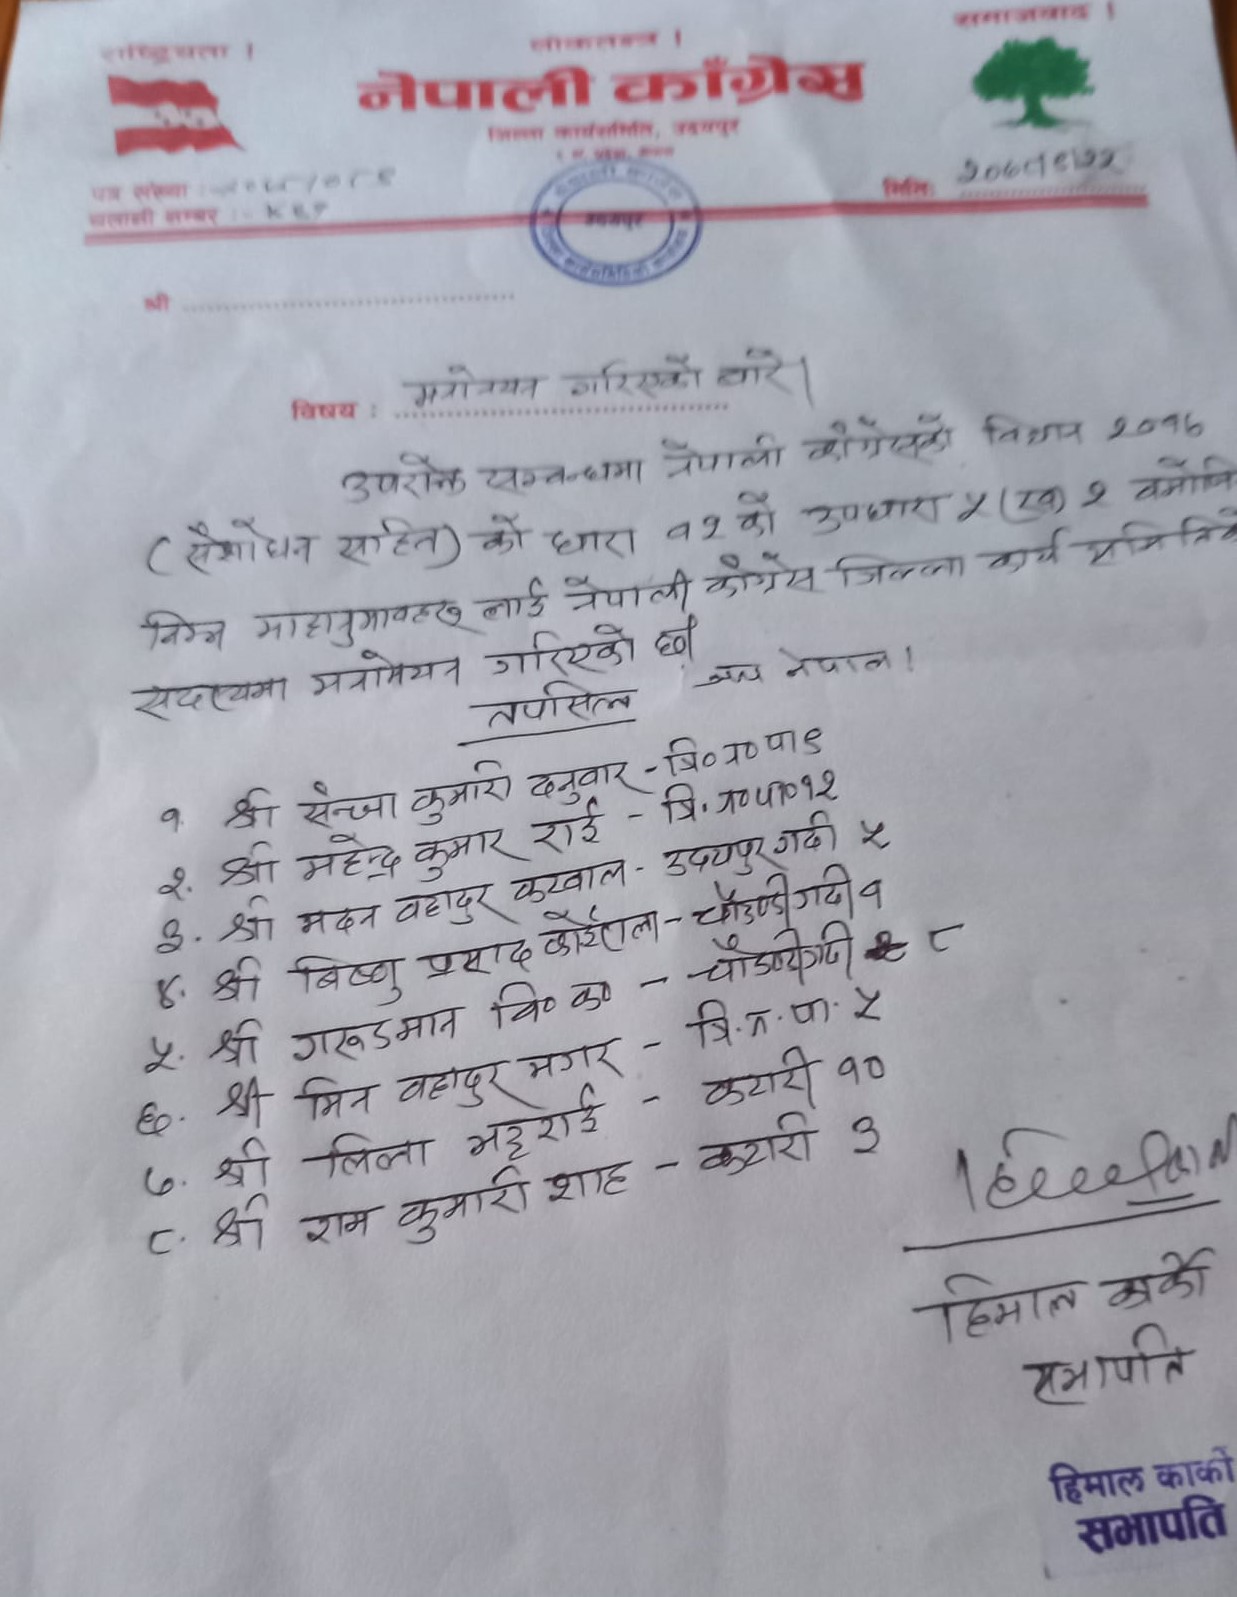 राष्ट्रियता ।
लोकतन्त्र ।
समाजवाद ।
नेपाली काँग्रेस
जिल्ला कार्यसमिति, उदयपुर
पत्र संख्या :-
चलानी नम्बर :-
मिति:
उदयपुर
श्री
विषय : मनोनयन गरिएको बारे।
उपरोक्त सम्बन्धमा नेपाली काँग्रेसको विधान २०१७
(संशोधन सहित) को धारा १२ को उपधारा ५ (ख) २ बमोजि
निम्न माहानुभावहरु लाई नेपाली काँग्रेस जिल्ला कार्य समितिको
सदस्यमा मनोनयन गरिएको छ।
जय नेपाल !
तपसिल
१. श्री सन्जा कुमारी दनुवार - त्रि० न० पा ९
२. श्री महेन्द्र कुमार राई - त्रि. न० पा० १२
३. श्री मदन वहादुर कखाल - उदयपुर गढी ५
४. श्री बिष्णु प्रसाद कोईराला - चौडण्डीगढी १
५. श्री गरुडमान वि० क० - चौडण्डीगढी ८
६. श्री मिन वहादुर मगर - त्रि. न. पा. ५
७. श्री लिला भट्टराई - कटारी १०
८. श्री राम कुमारी शाह - कटारी ३
हिमाल कार्की
सभापति
हिमाल कार्की
सभापति